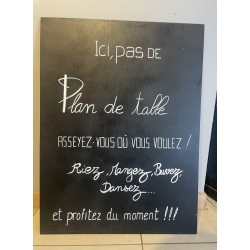 Ici, pas de
Plan de table
ASSEYEZ-VOUS OÙ VOUS VOULEZ !
Riez, Mangez, Buvez
Dansez...
et profitez du moment !!!